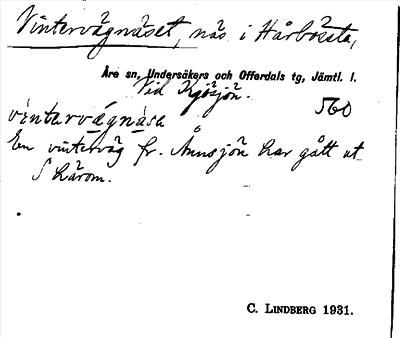 Vintervägnäset, näs i Hårbörsta,
Åre sn, Undersåkers och Offerdals tg, Jämtl. l.
Vid Kjösjön.
560
vintarvǻgnǻsa
En vinterväg fr. Ånnsjön har gått ut
S härom.
C. LINDBERG 1931.